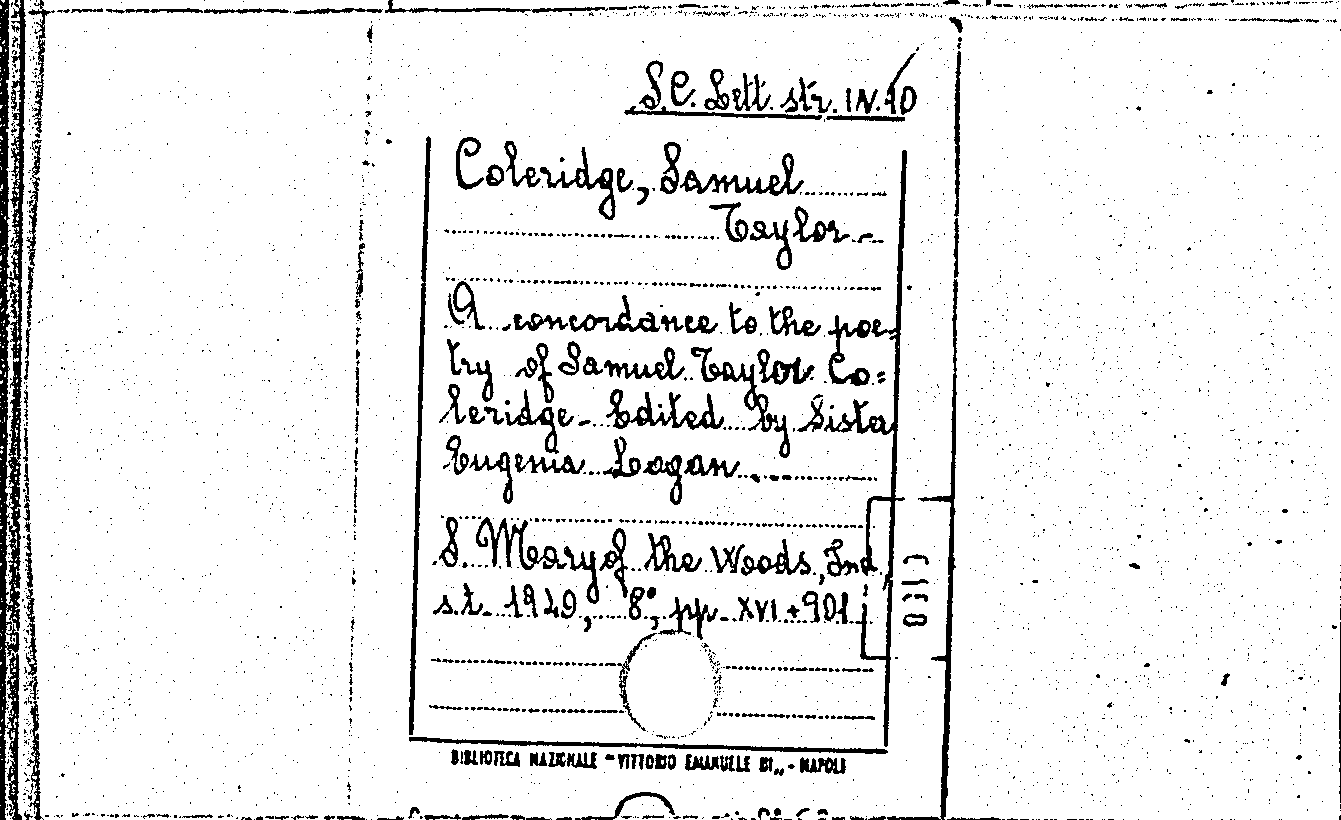 S.C. Lett. str. IV. 10
Coleridge, Samuel
Taylor -
A concordance to the poe=
try of Samuel Taylor Co=
leridge - Edited by Sister
Eugenia Logan.
S. Mary of the Woods, Ind.,
s.t. 1940, 8°, pp. XVI + 901
BIBLIOTECA NAZIONALE "VITTORIO EMANUELE III„ - NAPOLI